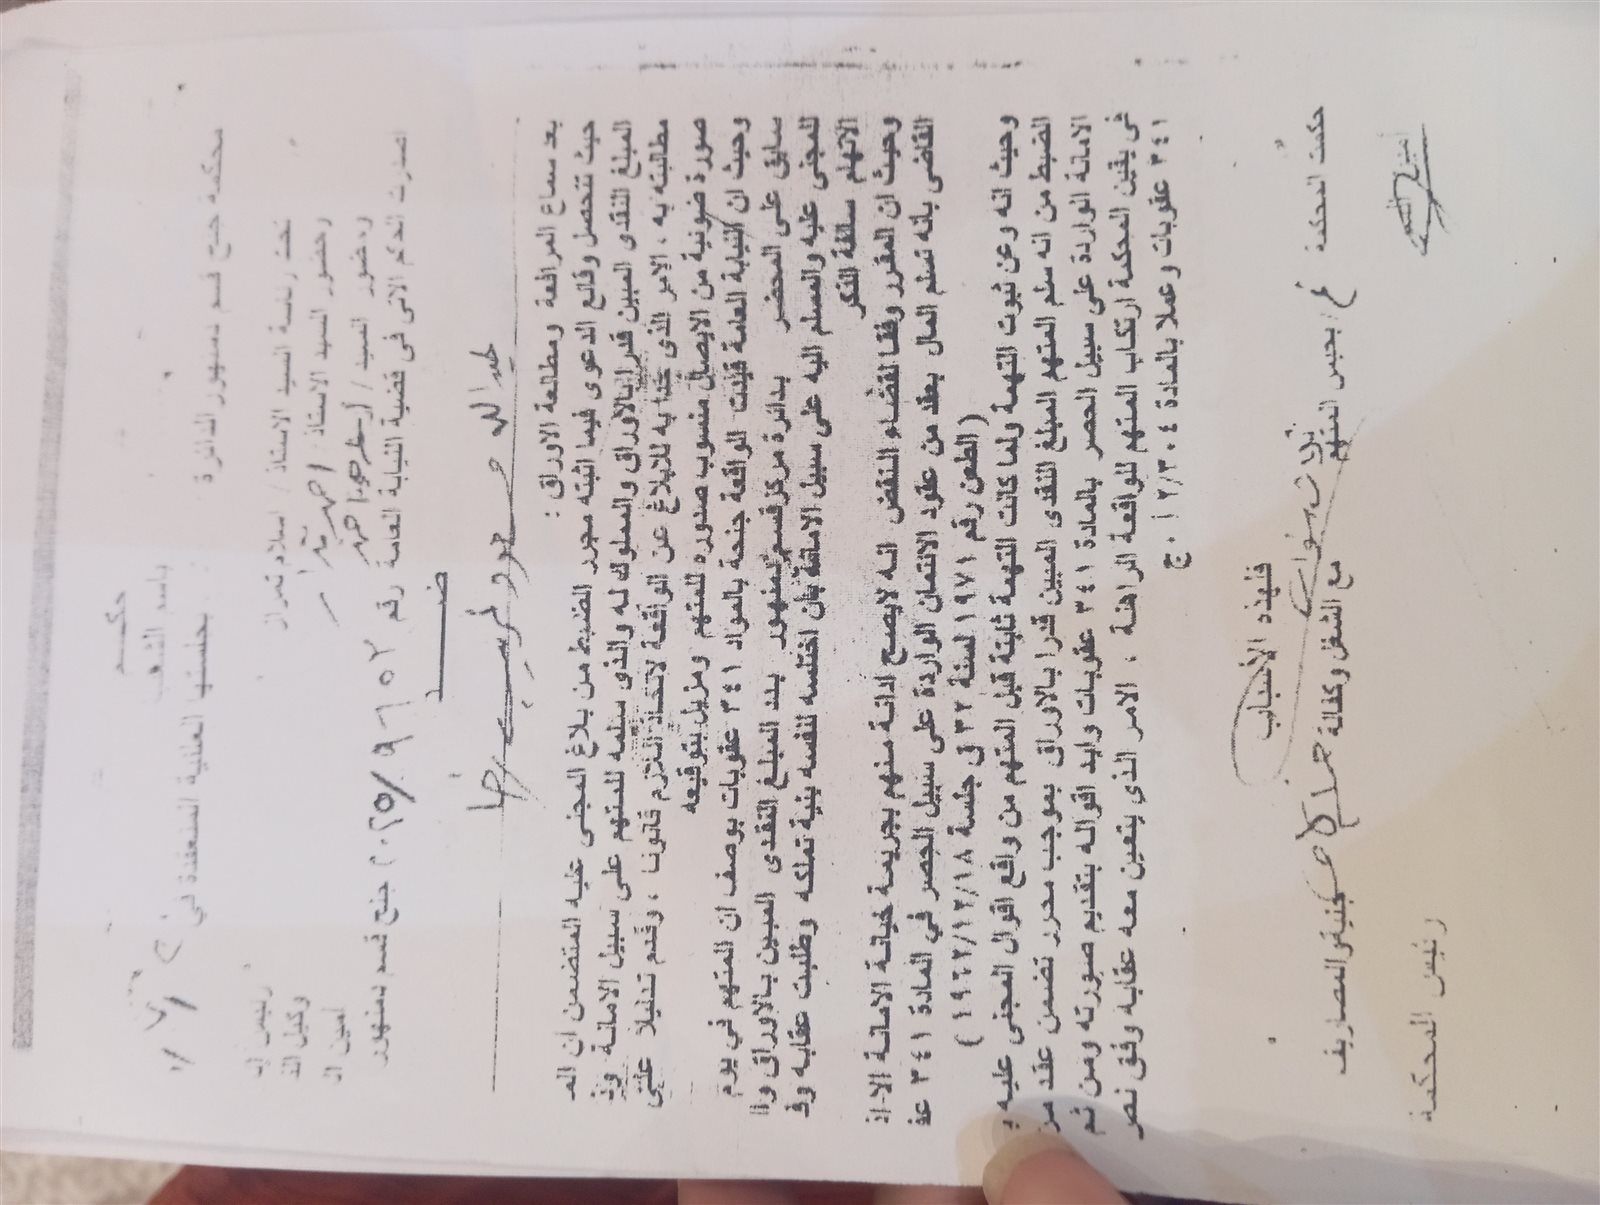 حكم
باسم الشعب
محكمة جنح قسم دمنهور الدائرة : بجلستها العلنية المنعقدة في
تحت رئاسة السيد الاستاذ / اسلام تمراز رئيس
وحضور السيد الاستاذ / وكيل
وحضور السيد / أمين
اصدرت الحكم الاتى فى قضية النيابة العامة رقم جنح قسم دمنهور
ضد
بعد سماع المرافعة ومطالعة الاوراق :
حيث تتحصل وقائع الدعوى فيما اثبته محرر الضبط من بلاغ المجنى عليه المتضمن ان
المبلغ النقدى المبين قدرا بالاوراق والمملوك له والذى سلمه للمتهم على سبيل الامانة
مطالبته به ، الامر الذى حدا به للابلاغ عن الواقعة لاتخاذ اللازم قانونا ، وقدم تدليلا على
صورة ضوئية من الايصال منسوب صدوره للمتهم ومزيل بتوقيعه
وحيث ان النيابة العامة قيدت الواقعة جنحة بالمواد ٣٤١ عقوبات بوصف ان المتهم في يوم
سابق على المحضر بدائرة مركز قسم دمنهور بدد المبلغ النقدى المبين بالاوراق
للمجنى عليه والمسلم اليه على سبيل الامانة بأن اختلسه لنفسه بنية تملكه وطلبت عقابه
الاتهام سالفة الذكر
وحيث ان المقرر وفقا لقضاء النقض انه لايصح ادانة متهم بجريمة خيانة الامانة
القاضى بانه تسلم المال بعقد من عقود الائتمان الواردة على سبيل الحصر في المادة ٣٤١
(الطعن رقم ١٩٧١ لسنة ٣٢ ق جلسة ١٩٦٢/١٢/١٨ )
وحيث انه وعن ثبوت التهمة ولما كانت التهمة ثابتة قبل المتهم من واقع اقوال المجنى عليه
الضبط من انه سلم المتهم المبلغ النقدى المبين قدرا بالاوراق بموجب محرر تضمن عقد
الامانة الواردة على سبيل الحصر بالمادة ٣٤١ عقوبات وايد اقواله بتقديم صورته ومن ثم
فى يقين المحكمة ارتكاب المتهم للواقعة الراهنة ، الامر الذي يتعين معه عقابه وفق نص
٣٤١ عقوبات وعملا بالمادة ١٢/٣٠٤ أ . ج
فلهذه الأسباب
حكمت المحكمة بحبس المتهم ثلاث سنوات مع الشغل وكفالة جنية والمصاريف
أمين السر
رئيس المحكمة